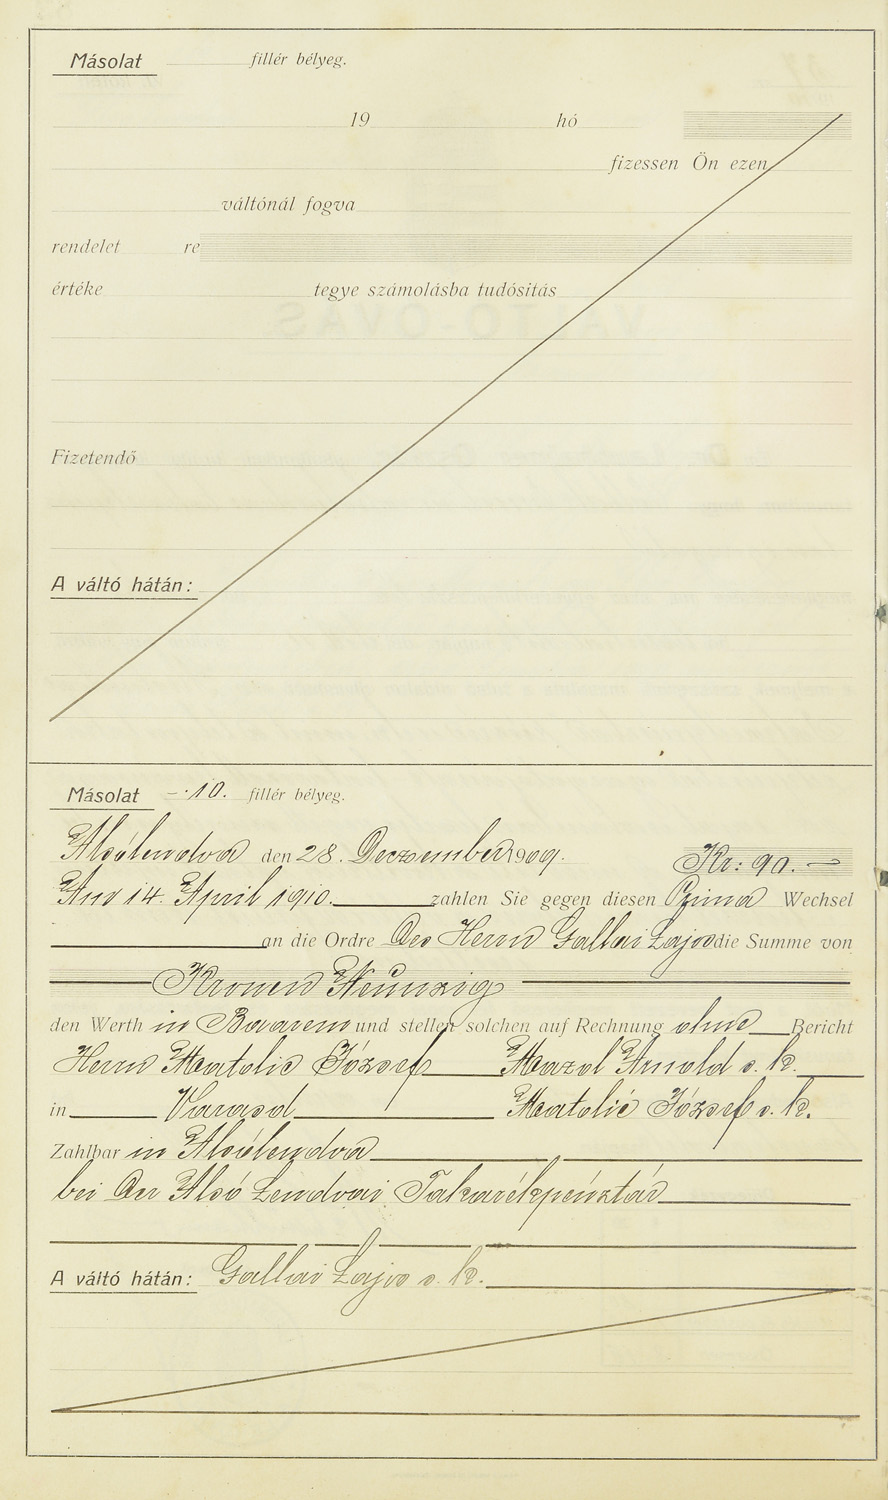 Másolat fillér bélyeg.
19 hó
fizessen Ön ezen
váltónál fogva
rendelet re
értéke tegye számolásba tudósitás
Fizetendő
A váltó hátán:
Másolat -·10. fillér bélyeg.
Alsólendva den 28. Dezember 1909. Kr: 90.-
Am 14. April 1910. zahlen Sie gegen diesen Prima Wechsel
an die Ordre Des Herrn Gallai Lajos die Summe von
Kronen Neunzig
den Werth in Waaren und stellen solchen auf Rechnung ohne Bericht
Herrn Matolic József Mazal Arnold s. k.
in Varasd Matolić József s. k.
Zahlbar in Alsólendva
bei Der Alsó Lendvai Takarékpénztár
A váltó hátán: Gallai Lajos s. k.